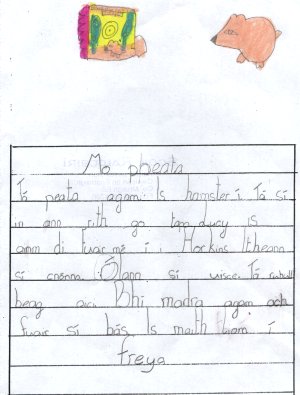 Mo pheata
Tá peata agam Is hamster í. Tá sí
in ann rith go tapa Lucy is
ainm di Fuair mé í i Hockins Itheann
sí cnónna. Ólann sí uisce. Tá ruball
beag aici Bhí madra agam ach
fuair sí bás Is maith liom í
freya